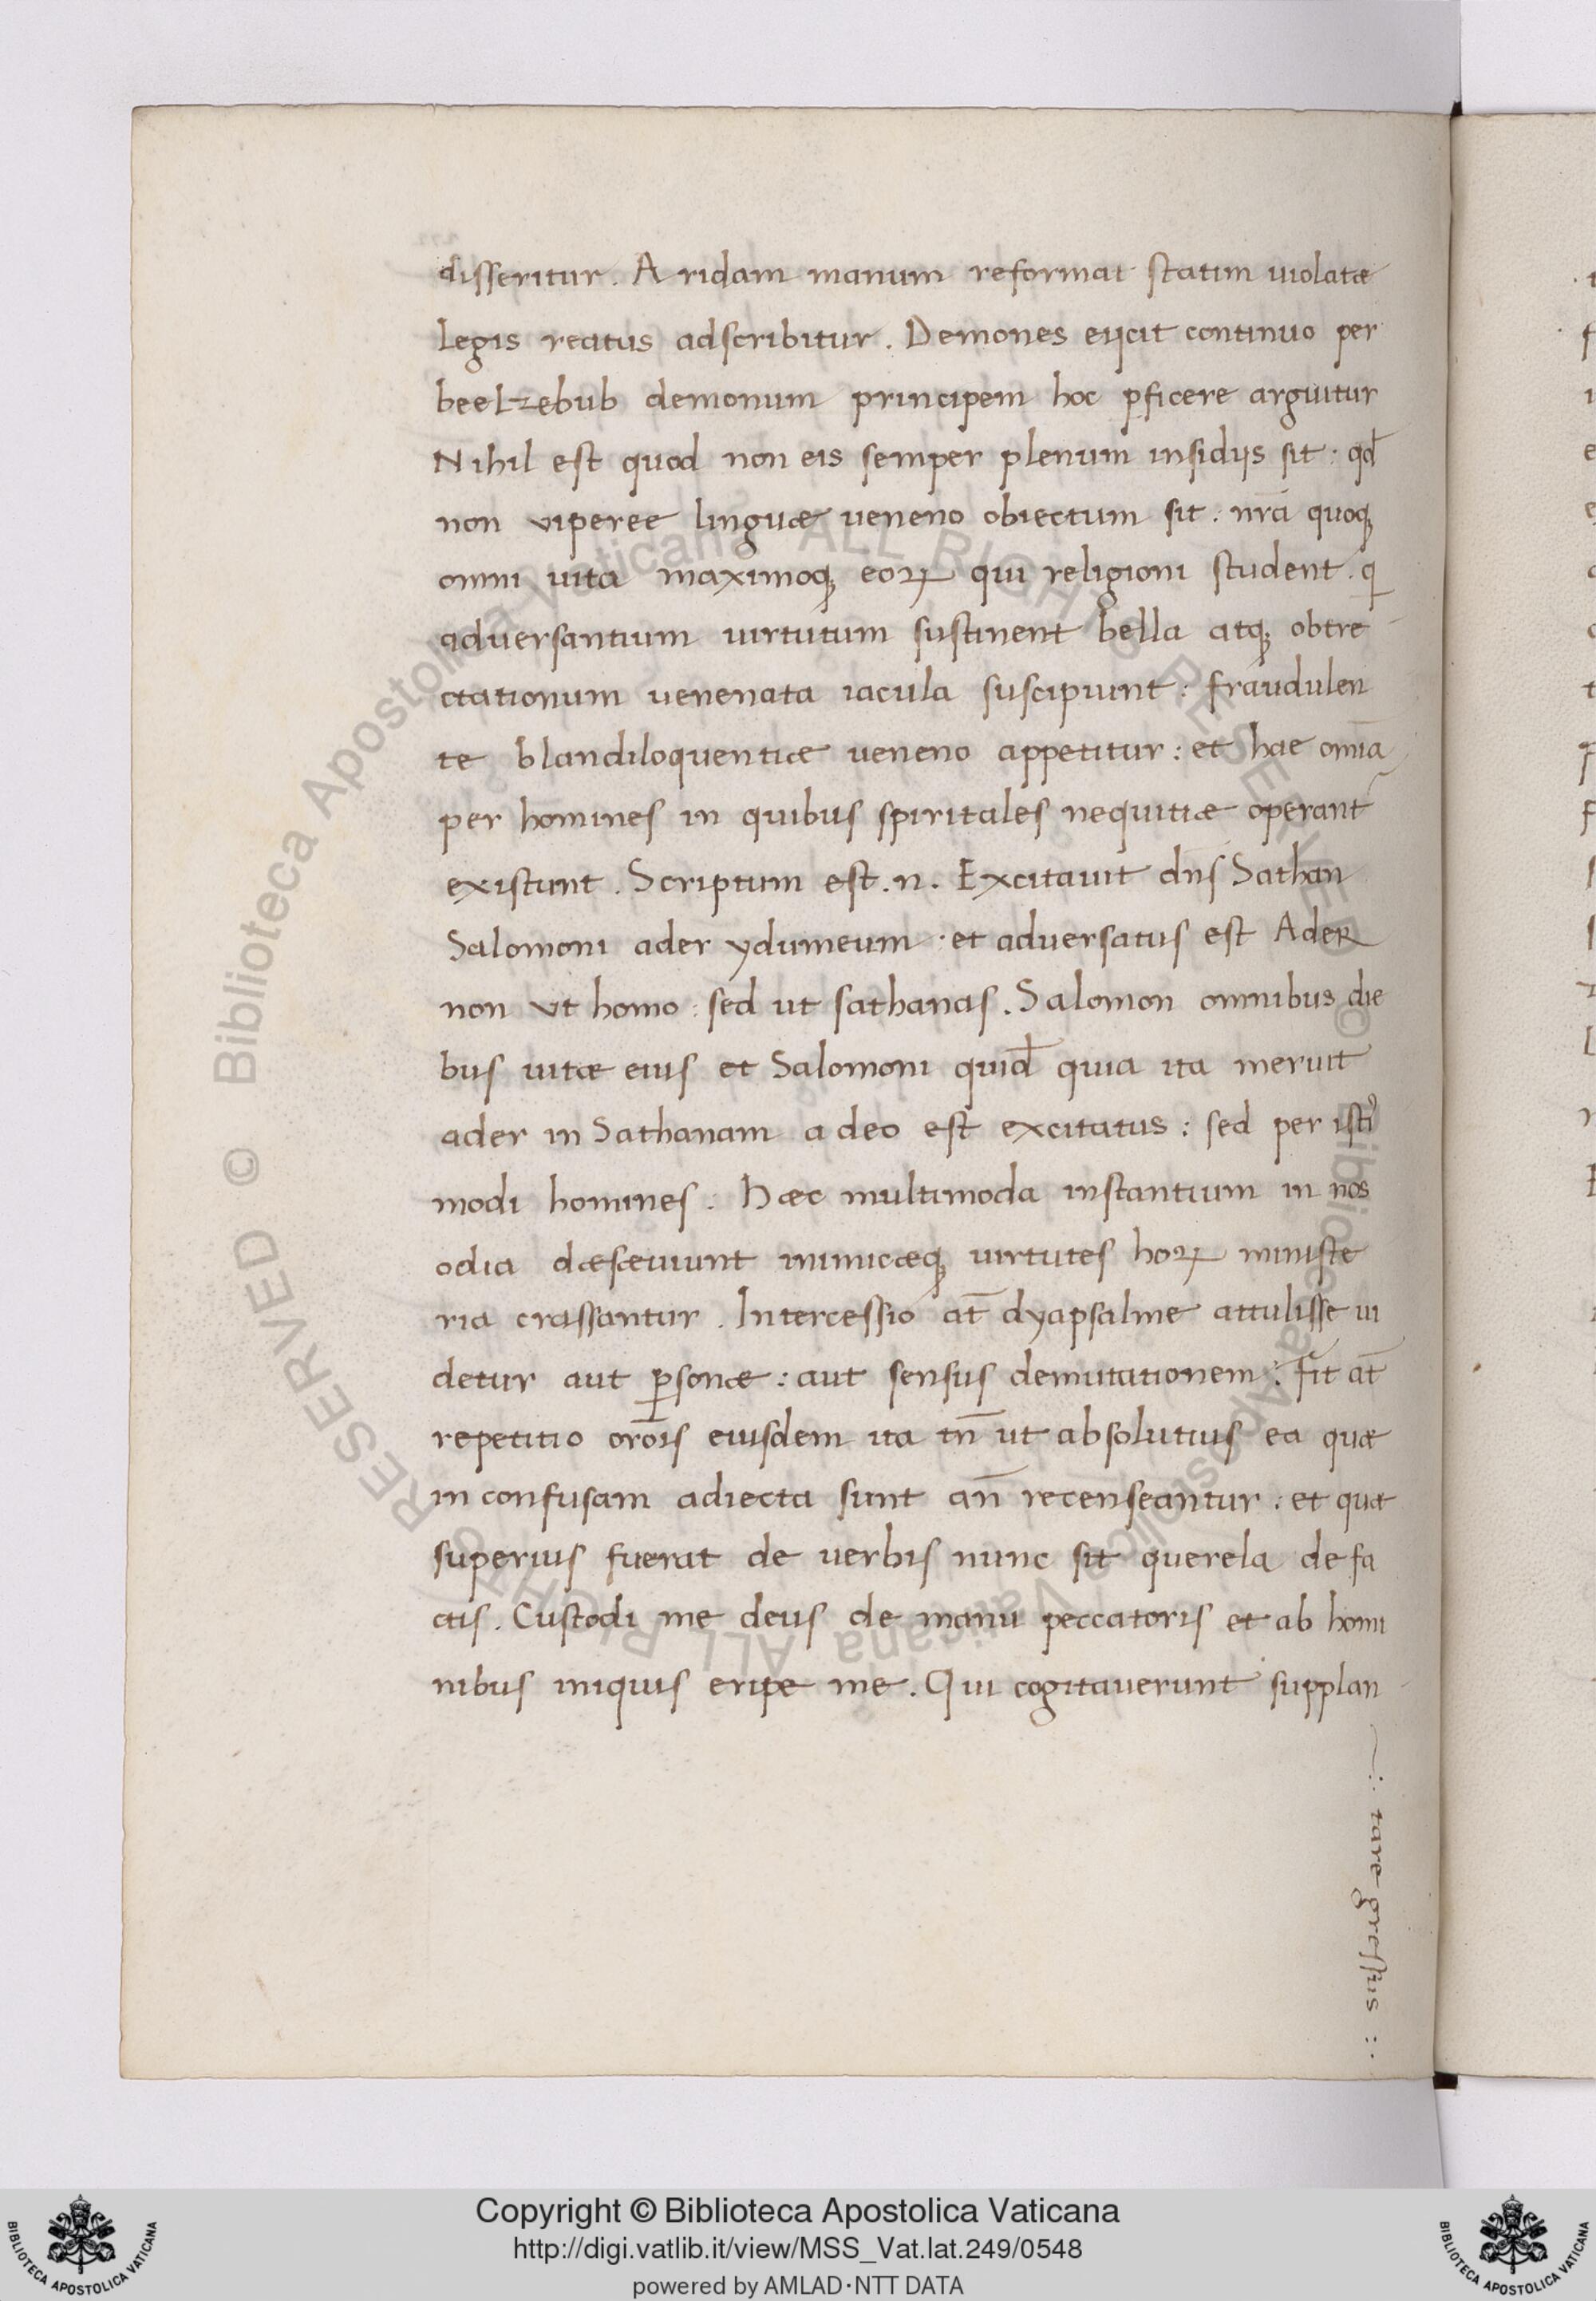 disseritur. Aridam manum reformat statim uiolatæ
legis reatus adscribitur. Demones eijcit continuo per
beelzebub demonum principem hoc pficere arguitur
Nihil est quod non eis semper plenum insidijs sit: qd̄
non viperee linguæ veneno obiectum sit: nr̄a quoqꝫ
omni uita maximoqꝫ eoꝝ qui religioni student. q
adversantium uirtutum sustinent bella atqꝫ obtre
ctationum venenata iacula suscipiunt: fraudulen
te blandiloquentiæ veneno appetitur: et hae om̄ia
per homines in quibus spiritales nequitiæ operant̄
existunt. Scriptum est.n. Excitauit dn̄s Sathan
Salomoni ader ydumeum: et adversatus est Ader
non vt homo: sed ut sathanas. Salomon omnibus die
bus uitæ eius et Salomoni quid̄ quia ita meruit
ader in Sathanam a deo est excitatus: sed per isti᾽
modi homines. Hæc multimoda instantium in nos
odia dæsæuiunt inimicæqꝫ uirtutes hoꝝ ministe
ria crassantur. Intercessio at̄ dyapsalme attulisse ui
detur aut ꝑsonæ: aut sensus demutationem. Fit at̄
repetitio orōis eiusdem ita tn̄ ut absolutius ea quæ
in confusam adiecta sunt an̄ recenseantur: et quæ
superius fuerat de verbis nunc sit querela de fa
ctis. Custodi me deus de manu peccatoris et ab homi
nibus iniquis eripe me. Qui cogitauerunt supplan
tare gressus
© Biblioteca Apostolica Vaticana ALL RIGHTS RESERVED © Biblioteca Apostolica Vaticana ALL RIGHTS RESERVED
Copyright © Biblioteca Apostolica Vaticana
http://digi.vatlib.it/view/MSS_Vat.lat.249/0548
powered by AMLAD·NTT DATA
BIBLIOTECA APOSTOLICA VATICANA
BIBLIOTECA APOSTOLICA VATICANA